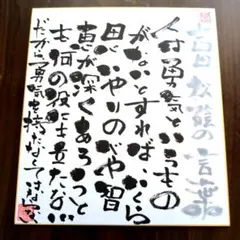 吉田松陰の言葉
人は勇気というもの
がないとすれば、いくら
思いやりの心や智
恵が深くあろうと
も何の役にも立たない
だから勇気を持たなくてはならない